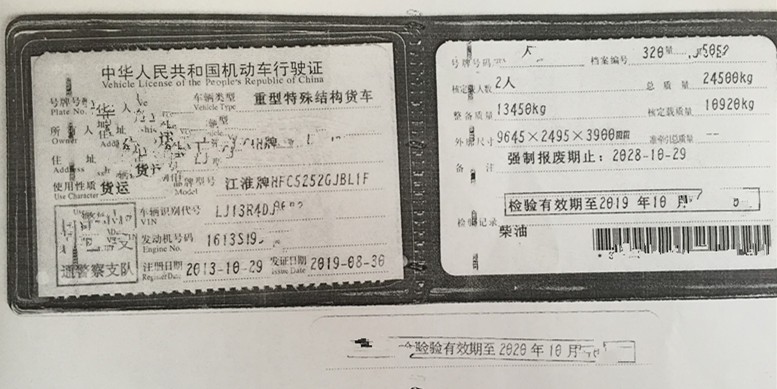 中华人民共和国机动车行驶证
Vehicle License of the People's Republic of China
号牌号码
Plate No.
车辆类型 重型特殊结构货车
Vehicle Type
所 人
Owner
住 址
Address
使用性质 货运
Use Character
品牌型号 江淮牌HFC5252GJBL1F
Model
车辆识别代号 LJ13R4DJ
VIN
发动机号码 1613S19
Engine No.
注册日期 2013-10-29 发证日期 2019-08-30
Register Date Issue Date
通警察支队
号牌号码 档案编号 320
核定载人数 2人 总质量 24500kg
整备质量 13450kg 核定载质量 10920kg
外廓尺寸 9645×2495×3900 准牵引总质量 --
备 注 强制报废期止：2028-10-29
检验有效期至2019年10月
检验记录
柴油
检验有效期至2020年10月